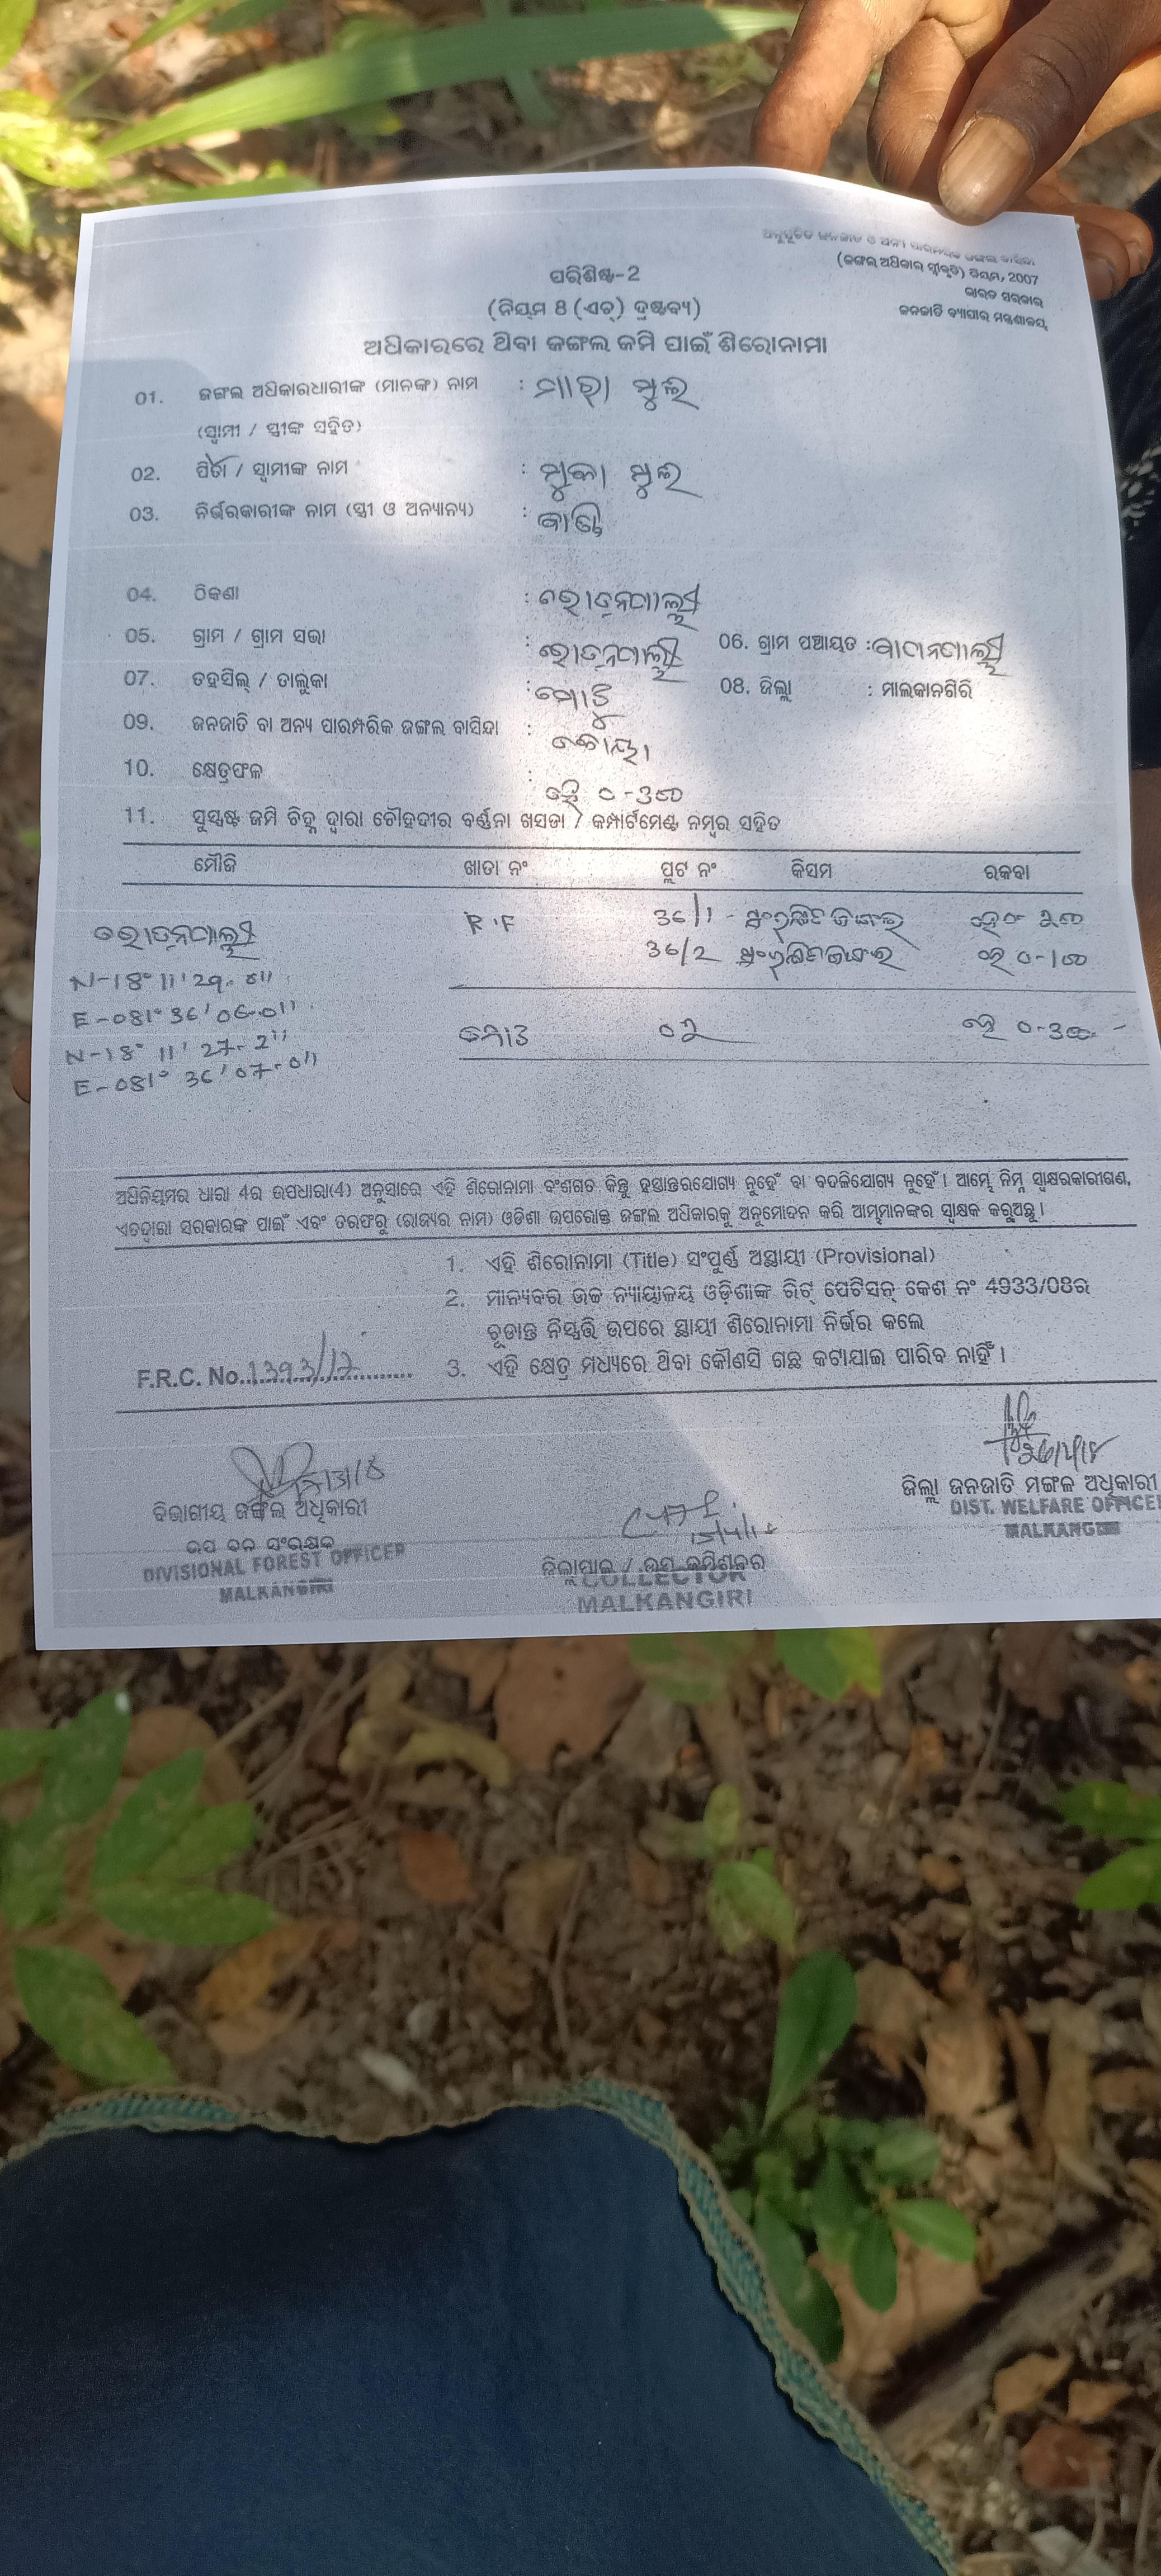 ଅନୁସୂଚିତ ଜନଜାତି ଓ ଅନ୍ୟ ପାରମ୍ପରିକ ଜଙ୍ଗଲ ବାସିନ୍ଦା
(ଜଙ୍ଗଲ ଅଧିକାର ସ୍ୱୀକୃତି) ନିୟମ, 2007
ଭାରତ ସରକାର
ଜନଜାତି ବ୍ୟାପାର ମନ୍ତ୍ରଣାଳୟ
ପରିଶିଷ୍ଟ-2
(ନିୟମ 8 (ଏଚ୍) ଦ୍ରଷ୍ଟବ୍ୟ)
ଅଧିକାରରେ ଥିବା ଜଙ୍ଗଲ ଜମି ପାଇଁ ଶିରୋନାମା
01. ଜଙ୍ଗଲ ଅଧିକାରଧାରୀଙ୍କ (ମାନଙ୍କ) ନାମ :
(ସ୍ୱାମୀ / ସ୍ତ୍ରୀଙ୍କ ସହିତ)
02. ପିତା / ସ୍ୱାମୀଙ୍କ ନାମ :
03. ନିର୍ଭରକାରୀଙ୍କ ନାମ (ସ୍ତ୍ରୀ ଓ ଅନ୍ୟାନ୍ୟ) :
04. ଠିକଣା :
05. ଗ୍ରାମ / ଗ୍ରାମ ସଭା : 06. ଗ୍ରାମ ପଞ୍ଚାୟତ :
07. ତହସିଲ୍ / ତାଲୁକା : 08. ଜିଲ୍ଲା : ମାଲକାନଗିରି
09. ଜନଜାତି ବା ଅନ୍ୟ ପାରମ୍ପରିକ ଜଙ୍ଗଲ ବାସିନ୍ଦା : କୋୟା
10. କ୍ଷେତ୍ରଫଳ : ହେ 0-300
11. ସୁସ୍ପଷ୍ଟ ଜମି ଚିହ୍ନ ଦ୍ୱାରା ଚୌହଦୀର ବର୍ଣ୍ଣନା ଖସଡା / କମ୍ପାର୍ଟମେଣ୍ଟ ନମ୍ବର ସହିତ
ମୌଜି ଖାତା ନଂ ପ୍ଲଟ ନଂ କିସମ ରକବା
R.F 36/1 ହେ 0-200
36/2 ହେ 0-100
N-18° 11' 29.
E-081° 36' 06.0"
N-18° 11' 27-2"
E-081° 36' 07.0"
ମୋଟ 02 ହେ 0-300
ଅଧିନିୟମର ଧାରା 4ର ଉପଧାରା(4) ଅନୁସାରେ ଏହି ଶିରୋନାମା ବଂଶଗତ କିନ୍ତୁ ହସ୍ତାନ୍ତରଯୋଗ୍ୟ ନୁହେଁ ବା ବଦଳିଯୋଗ୍ୟ ନୁହେଁ। ଆମ୍ଭେ ନିମ୍ନ ସ୍ୱାକ୍ଷରକାରୀଗଣ,
ଏତଦ୍ୱାରା ସରକାରଙ୍କ ପାଇଁ ଏବଂ ତରଫରୁ (ରାଜ୍ୟର ନାମ) ଓଡିଶା ଉପରୋକ୍ତ ଜଙ୍ଗଲ ଅଧିକାରକୁ ଅନୁମୋଦନ କରି ଆମ୍ଭମାନଙ୍କର ସ୍ୱାକ୍ଷକ କରୁଅଛୁ।
1. ଏହି ଶିରୋନାମା (Title) ସଂପୁର୍ଣ୍ଣ ଅସ୍ଥାୟୀ (Provisional)
2. ମାନ୍ୟବର ଉଚ୍ଚ ନ୍ୟାୟାଳୟ ଓଡ଼ିଶାଙ୍କ ରିଟ୍ ପେଟିସନ୍ କେଶ ନଂ 4933/08ର
ଚୂଡାନ୍ତ ନିସ୍ପତ୍ତି ଉପରେ ସ୍ଥାୟୀ ଶିରୋନାମା ନିର୍ଭର କଲେ
3. ଏହି କ୍ଷେତ୍ର ମଧ୍ୟରେ ଥିବା କୌଣସି ଗଛ କଟାଯାଇ ପାରିବ ନାହିଁ।
F.R.C. No. 1393/17
ବିଭାଗୀୟ ଜଙ୍ଗଲ ଅଧିକାରୀ
ଉପ ବନ ସଂରକ୍ଷକ
DIVISIONAL FOREST OFFICER
MALKANGIRI
ଜିଲ୍ଲାପାଳ / ଉପ କମିଶନର
COLLECTOR
MALKANGIRI
ଜିଲ୍ଲା ଜନଜାତି ମଙ୍ଗଳ ଅଧିକାରୀ
DIST. WELFARE OFFICER
MALKANGIRI